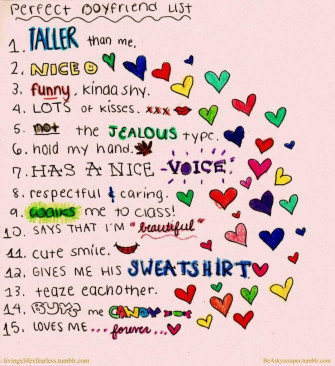 perfect Boyfriend List
1. TALLER than me.
2. NICE
3. funny, kinda shy.
4. LOTS of kisses. xxx
5. not the JEALOUS type.
6. hold my hand.
7. HAS A NICE -VOICE-
8. respectful & caring.
9. walks me to class!
10. SAYS THAT I'M "beautiful"
11. cute smile.
12. GIVES ME HIS SWEATSHIRT
13. teaze eachother.
14. BUYS me CANDY
15. LOVES ME... forever...